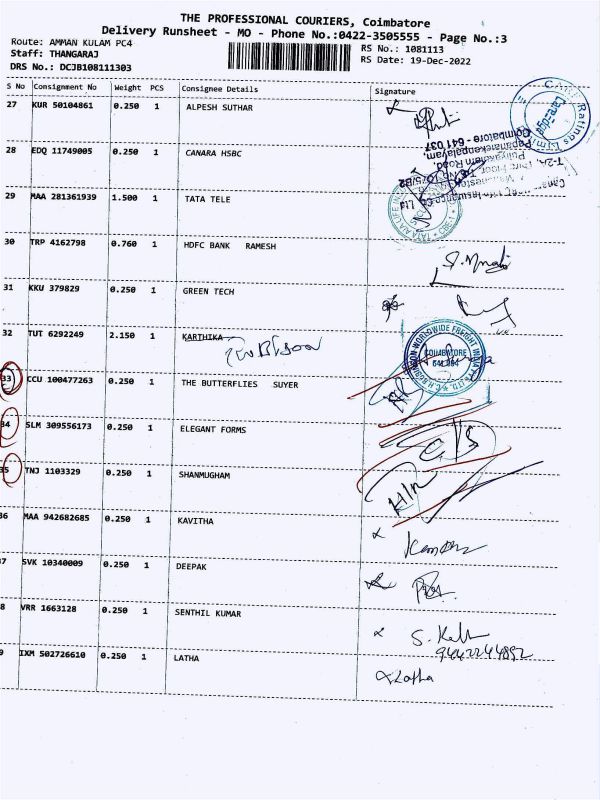 THE PROFESSIONAL COURIERS, Coimbatore
Delivery Runsheet - MO - Phone No.:0422-3505555 - Page No.:3
Route: AMMAN KULAM PC4
Staff: THANGARAJ
DRS No.: DCJB108111303
RS No.: 1081113
RS Date: 19-Dec-2022
S No Consignment No Weight PCS Consignee Details Signature
27 KUR 50104861 0.250 1 ALPESH SUTHAR
28 EDQ 11749005 0.250 1 CANARA HSBC
29 MAA 281361939 1.500 1 TATA TELE
30 TRP 4162798 0.760 1 HDFC BANK RAMESH
31 KKU 379829 0.250 1 GREEN TECH
32 TUT 6292249 2.150 1 KARTHIKA
33 CCU 100477263 0.250 1 THE BUTTERFLIES SUYER
34 SLM 309556173 0.250 1 ELEGANT FORMS
35 TNJ 1103329 0.250 1 SHANMUGHAM
36 MAA 942682685 0.250 1 KAVITHA
37 SVK 10340009 0.250 1 DEEPAK
8 VRR 1663128 0.250 1 SENTHIL KUMAR
9 IXM 502726610 0.250 1 LATHA
CARE Ratings Limi
Care-dge
Coimbatore - 641 037
Papanaickenpalayam,
Puliyakulam Road,
Insurance Co Ltd
WORLDWIDE FREIGHT INDIA
COIMBATORE
D/S
H/R
S. Kall
9442244892
Latha